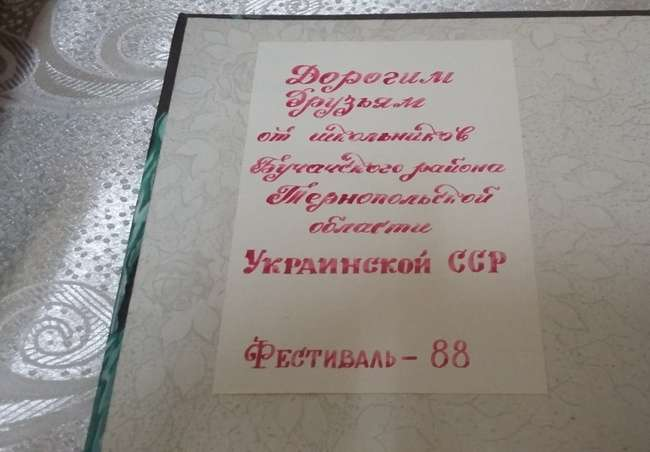 Дорогим
друзьям
от школьников
Бучачского района
Тернопольской
области
Украинской ССР
Фестиваль - 88